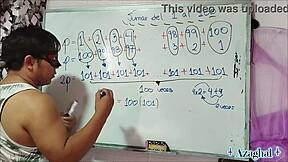 This video was uploaded
Sumar del 1 al 100
P = 1 + 2 + 3 + 4 + 98 + 99 + 100
+ 3 + 2 + 1
101 + 101 + 101 + 101 + + 101 + 101 + 101
2P
100 veces
4x2 = 4+4
2 veces
= 100 (101)
Azaghal